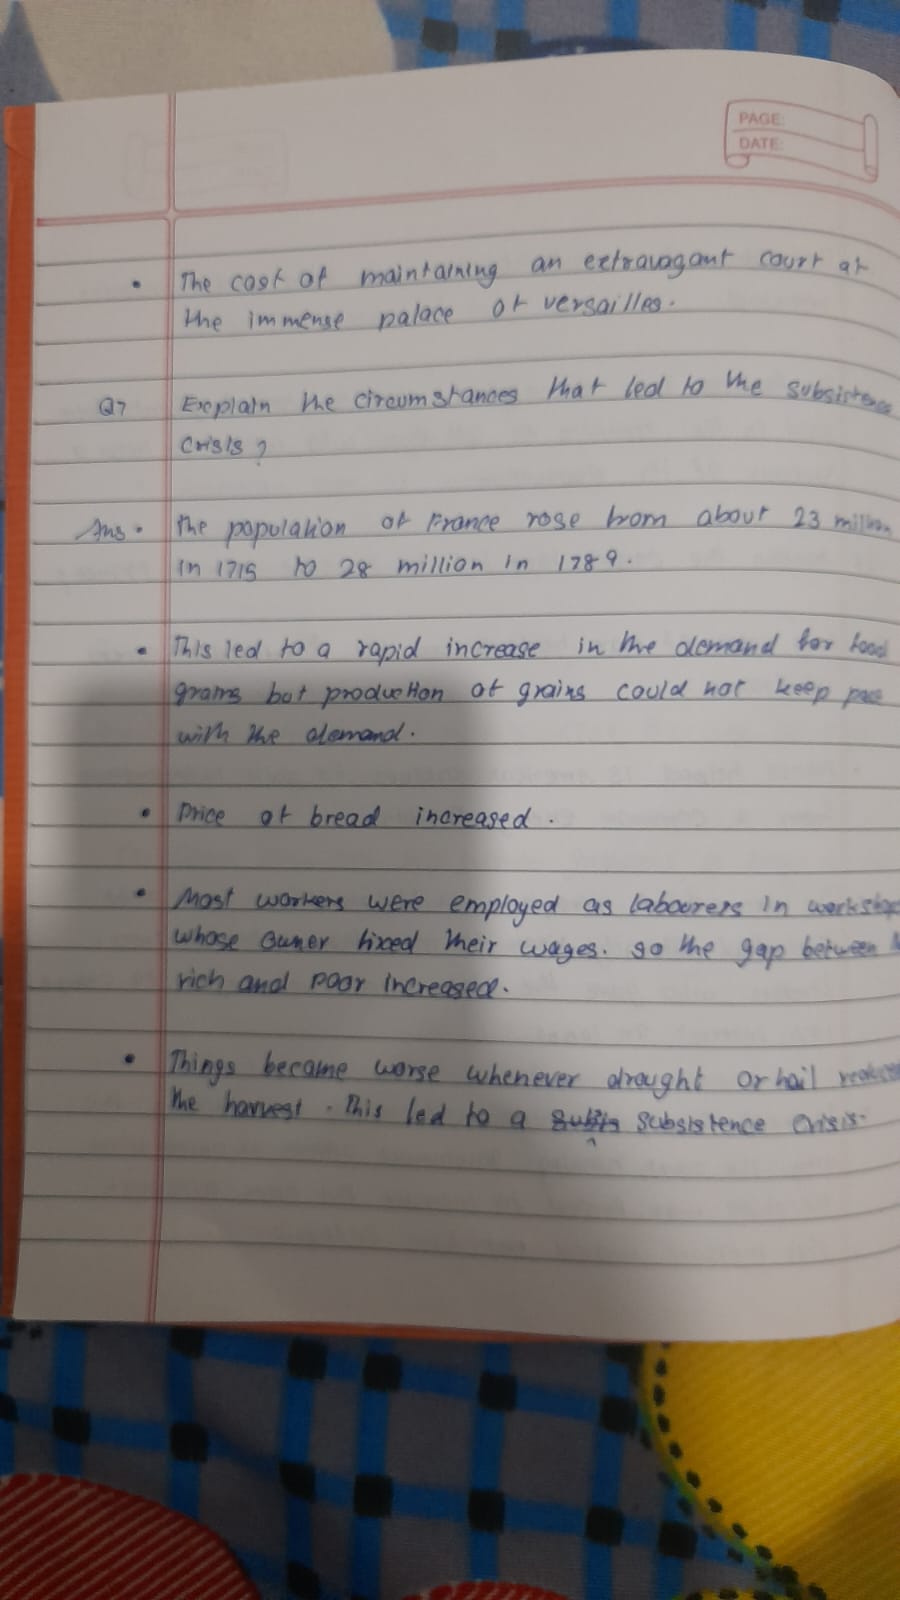 PAGE:
DATE:
• The cost of maintaining an extravagant court at
the immense palace of versailles.
Q7 Explain the circumstances that led to the subsistence
crisis?
Ans • The population of France rose from about 23 million
in 1715 to 28 million in 1789.
• This led to a rapid increase in the demand for food
grains but production of grains could not keep pace
with the demand.
• Price of bread increased.
• Most workers were employed as labourers in workshop
whose owner fixed their wages. so the gap between
rich and poor increased.
• Things became worse whenever drought or hail
the harvest. This led to a subsistence crisis.